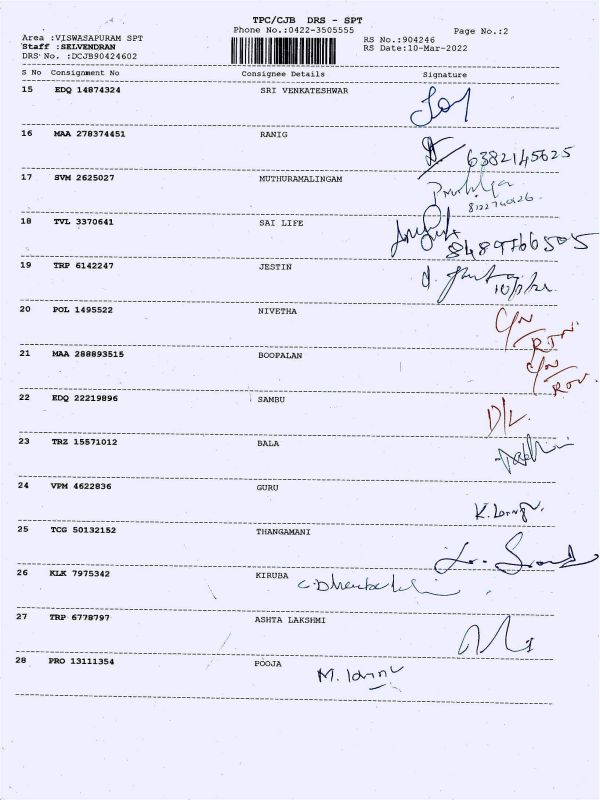 TPC/CJB DRS - SPT
Phone No.:0422-3505555
Page No.:2
Area :VISWASAPURAM SPT
RS No.:904246
Staff :SELVENDRAN
RS Date:10-Mar-2022
DRS No. :DCJB90424602
S No Consignment No Consignee Details Signature
15 EDQ 14874324 SRI VENKATESHWAR
16 MAA 278374451 RANIG
6382145625
17 SVM 2625027 MUTHURAMALINGAM
18 TVL 3370641 SAI LIFE
8489766505
19 TRP 6142247 JESTIN
20 POL 1495522 NIVETHA
C/N
RTN
21 MAA 288893515 BOOPALAN
C/N
22 EDQ 22219896 SAMBU
D/L.
23 TRZ 15571012 BALA
24 VPM 4622836 GURU
25 TCG 50132152 THANGAMANI
26 KLK 7975342 KIRUBA
27 TRP 6778797 ASHTA LAKSHMI
28 PRO 13111354 POOJA